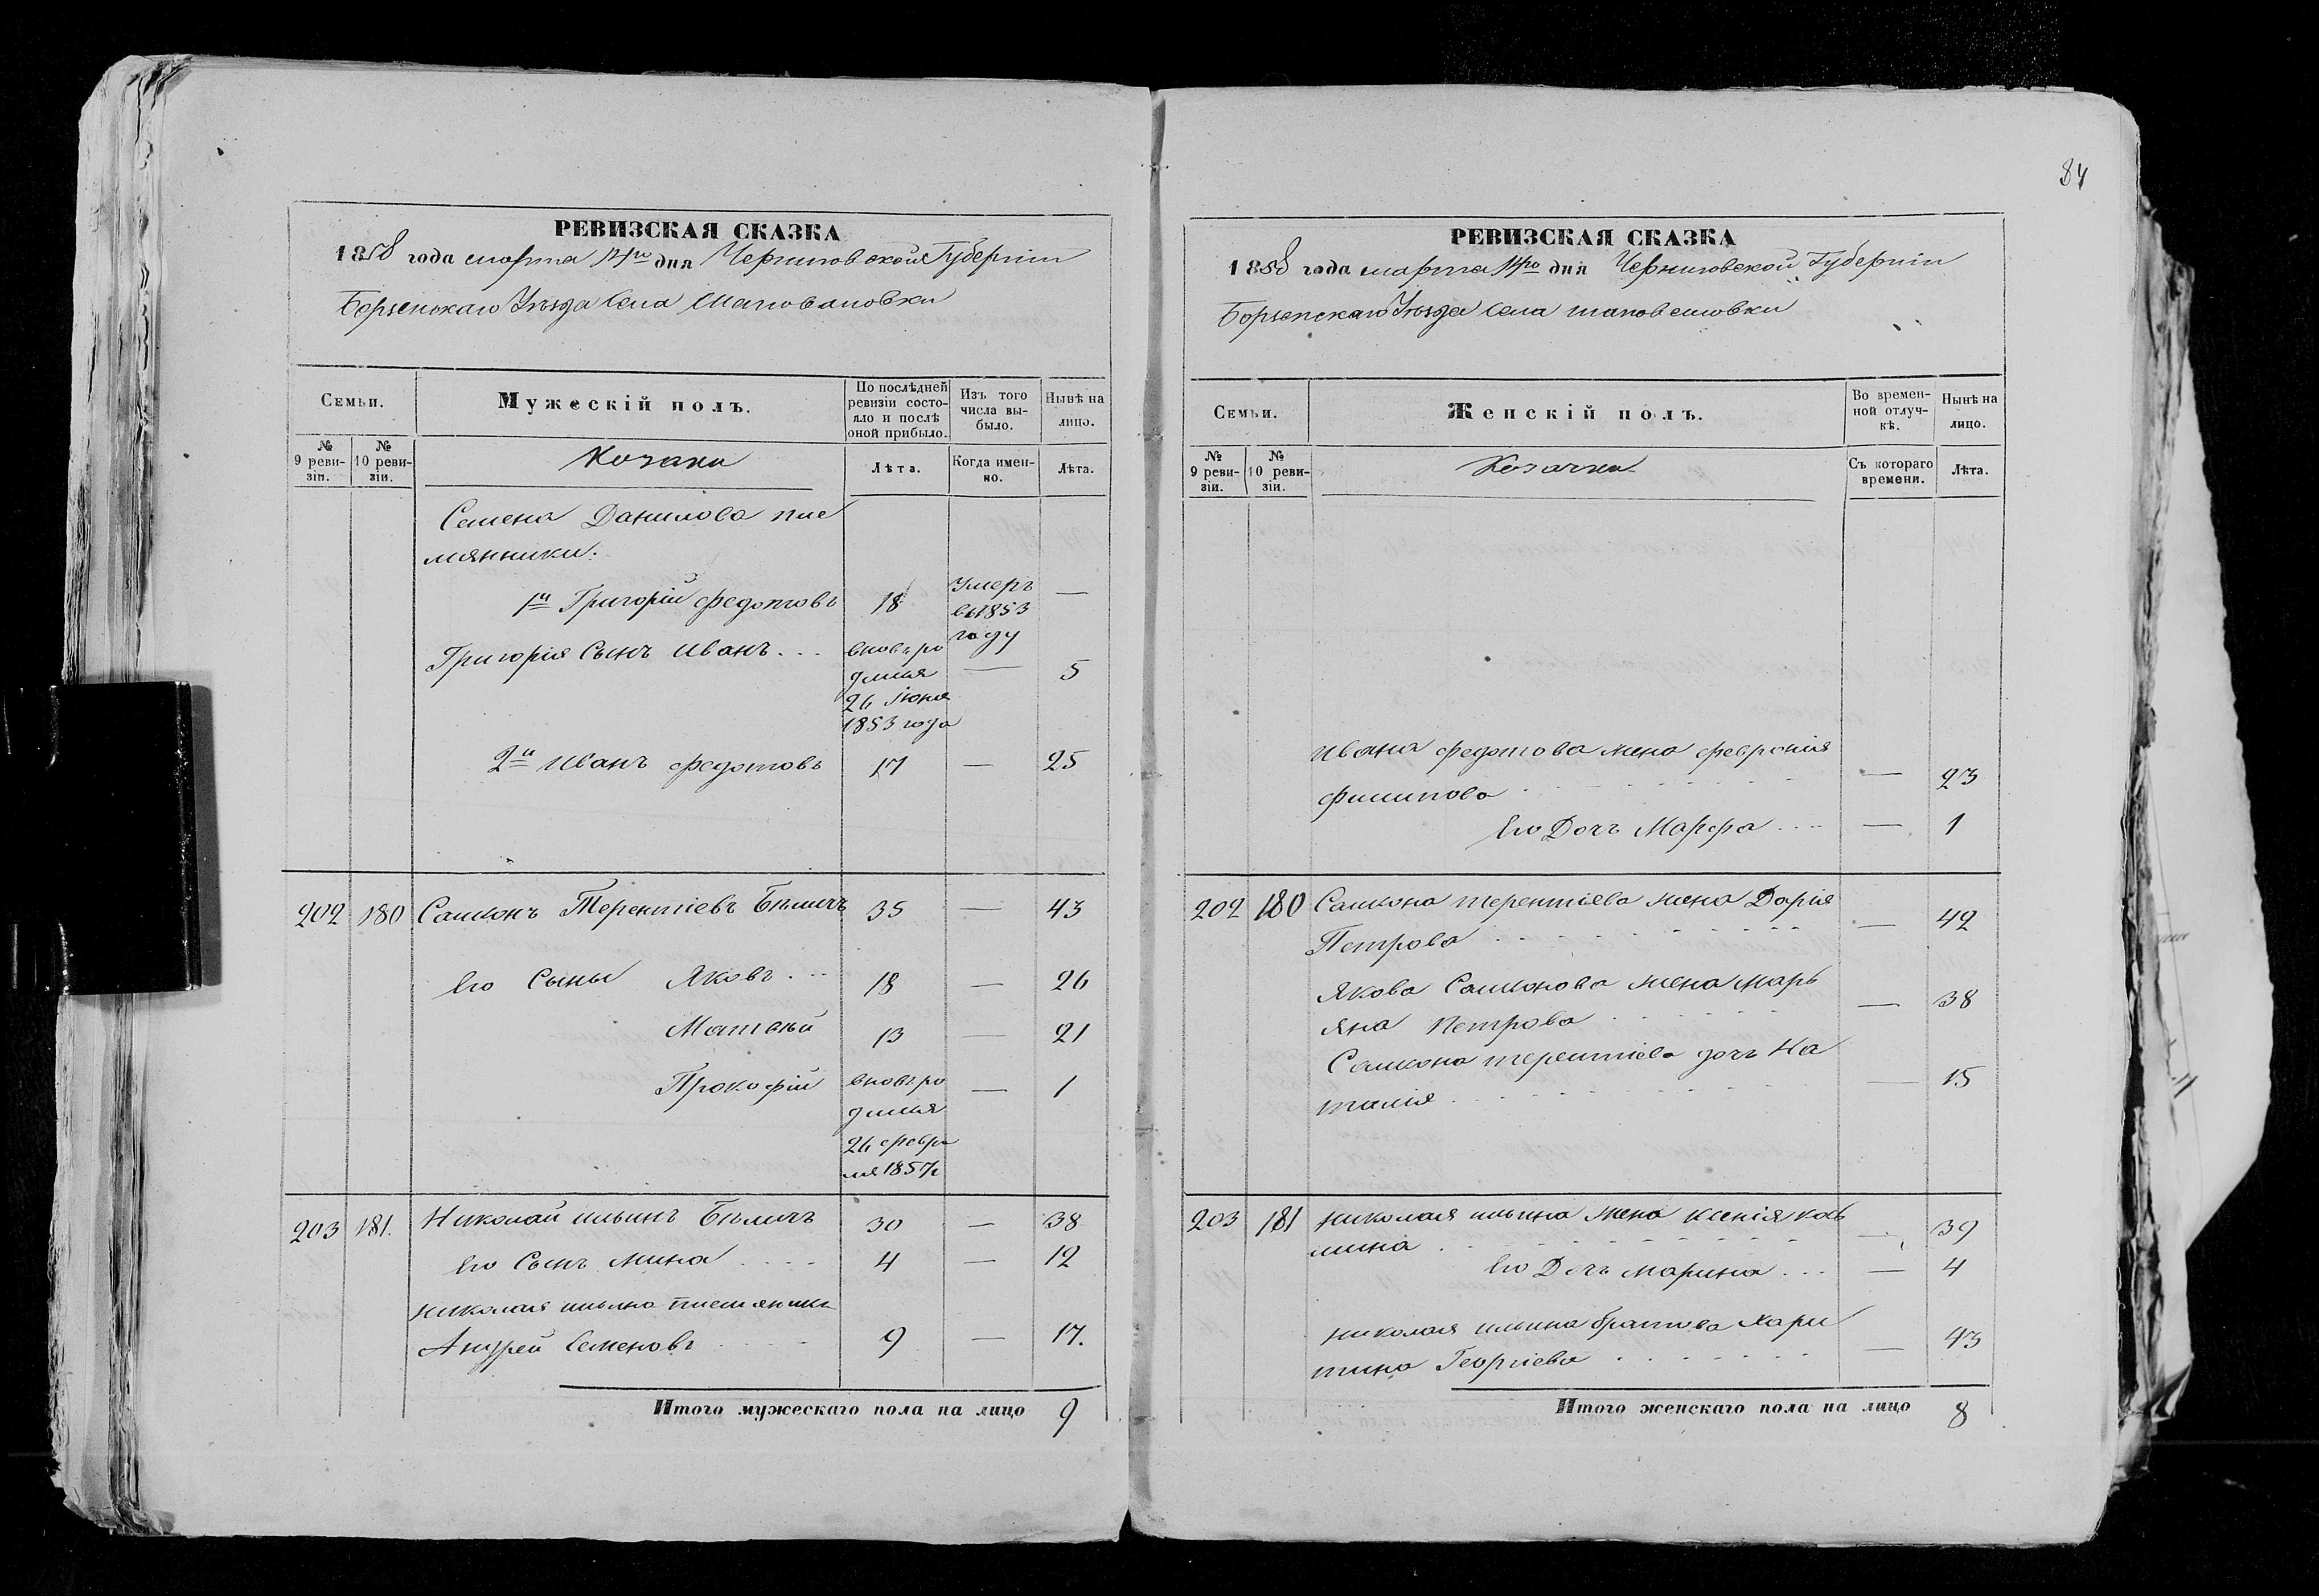 84
РЕВИЗСКАЯ СКАЗКА
1858 года марта 14го дня Черниговской Губерніи
Борзенскаго Уѣзда Села
Семьи.
Мужескій полъ.
По послѣдней ревизіи состояло и послѣ оной прибыло.
Изъ того числа выбыло.
Нынѣ на лицо.
№ 9 ревизіи.
№ 10 ревизіи.
Козаки
Лѣта.
Когда именно.
Лѣта.
Семена Данилова пле
мянники.
1й Григорій Федотовъ 18 Умеръ въ 1853 году —
Григорія Сынъ Иванъ... вновь ро
дился — 5
26 Іюня
1853 года
2й Иванъ Федотовъ 17 — 25
202 180 Самсонъ Терентіевъ Бѣличъ 35 — 43
Его Сыны Яковъ... 18 — 26
Матвѣй 13 — 21
Прокофій вновь ро — 1
дился
26 февра
ля 1857
203 181. Николай Ильинъ Бѣличъ 30 — 38
Его Сынъ Мина.... 4 — 12
Николая Ильина племянникъ
Андрей Семеновъ 9 — 17.
Итого мужескаго пола на лицо 9
РЕВИЗСКАЯ СКАЗКА
1858 года марта 14го дня Черниговской Губерніи
Борзенскаго Уѣзда Села
Семьи.
Женскій полъ.
Во временной отлучкѣ.
Нынѣ на лицо.
№ 9 ревизіи.
№ 10 ревизіи.
Козачки
Съ котораго времени.
Лѣта.
Ивана Федотова жена Февронія
Филипова — 23
Его Дочь Марфа.... — 1
202 180 Самсона Терентіева жена Дарія
Петрова — 42
Якова Самсонова жена Марь
яна Петрова — 38
Самсона Терентіева дочь На
талія — 15
203 181 Николая Ильина жена Ксенія Кось
мина — 39
Его Дочь Марина... — 4
Николая Ильина братова Хари
тина Георгіева — 43
Итого женскаго пола на лицо 8